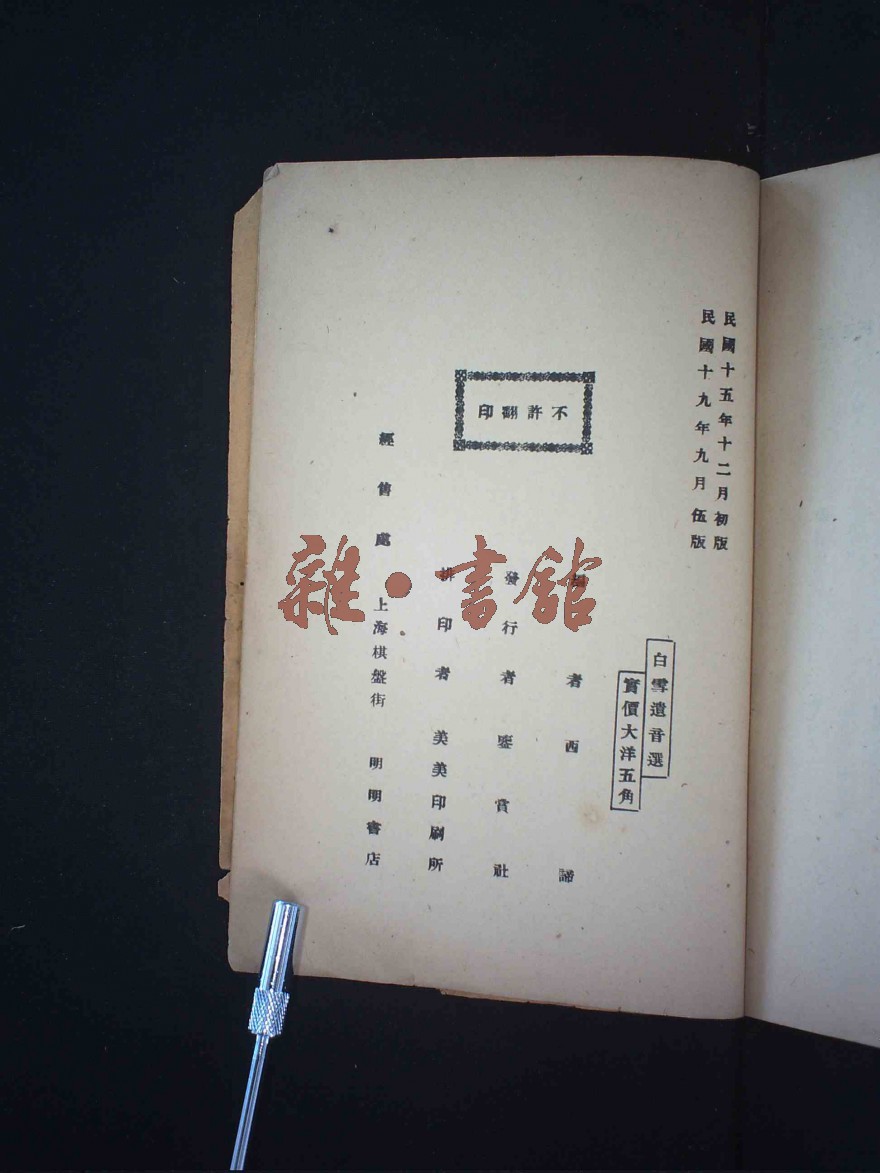 民國十五年十二月初版
民國十九年九月伍版
白雪遺音選
實價大洋五角
不許翻印
者西諦
發行者鑒賞社
排印者美美印刷所
經售處 上海棋盤街 明明書店
雜·書館